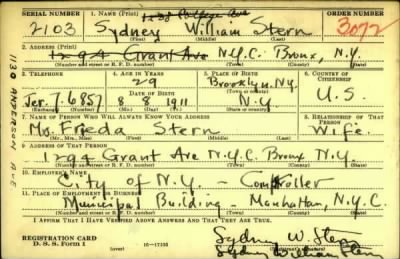 SERIAL NUMBER 1. NAME (Print) ORDER NUMBER
1238 College Ave
2103 Sydney William Stern 3072
(First) (Middle) (Last)
2. ADDRESS (Print)
1294 Grant Ave N.Y.C. Bronx, N.Y.
(Number and street or R. F. D. number) (Town) (County) (State)
3. TELEPHONE 4. AGE IN YEARS 5. PLACE OF BIRTH 6. COUNTRY OF CITIZENSHIP
29 Brooklyn, N.Y.
DATE OF BIRTH
Jer. 7-6857 8 8 1911 N.Y. U.S.
(Exchange) (Number) (Mo.) (Day) (Yr.) (State or country)
7. NAME OF PERSON WHO WILL ALWAYS KNOW YOUR ADDRESS 8. RELATIONSHIP OF THAT PERSON
Mrs. Frieda Stern Wife.
(Mr., Mrs., Miss) (First) (Middle) (Last)
9. ADDRESS OF THAT PERSON
1294 Grant Ave N.Y.C. Bronx N.Y.
(Number and street or R. F. D. number) (Town) (County) (State)
10. EMPLOYER'S NAME
City of N.Y. - Comptroller
11. PLACE OF EMPLOYMENT OR BUSINESS
Municipal Building - Manhattan, N.Y.C.
(Number and street or R. F. D. number) (Town) (County) (State)
I AFFIRM THAT I HAVE VERIFIED ABOVE ANSWERS AND THAT THEY ARE TRUE.
REGISTRATION CARD
D. S. S. Form 1 (over) 16-17105
Sydney W. Stern
Sydney William Stern
1130 ANDERSON AVE